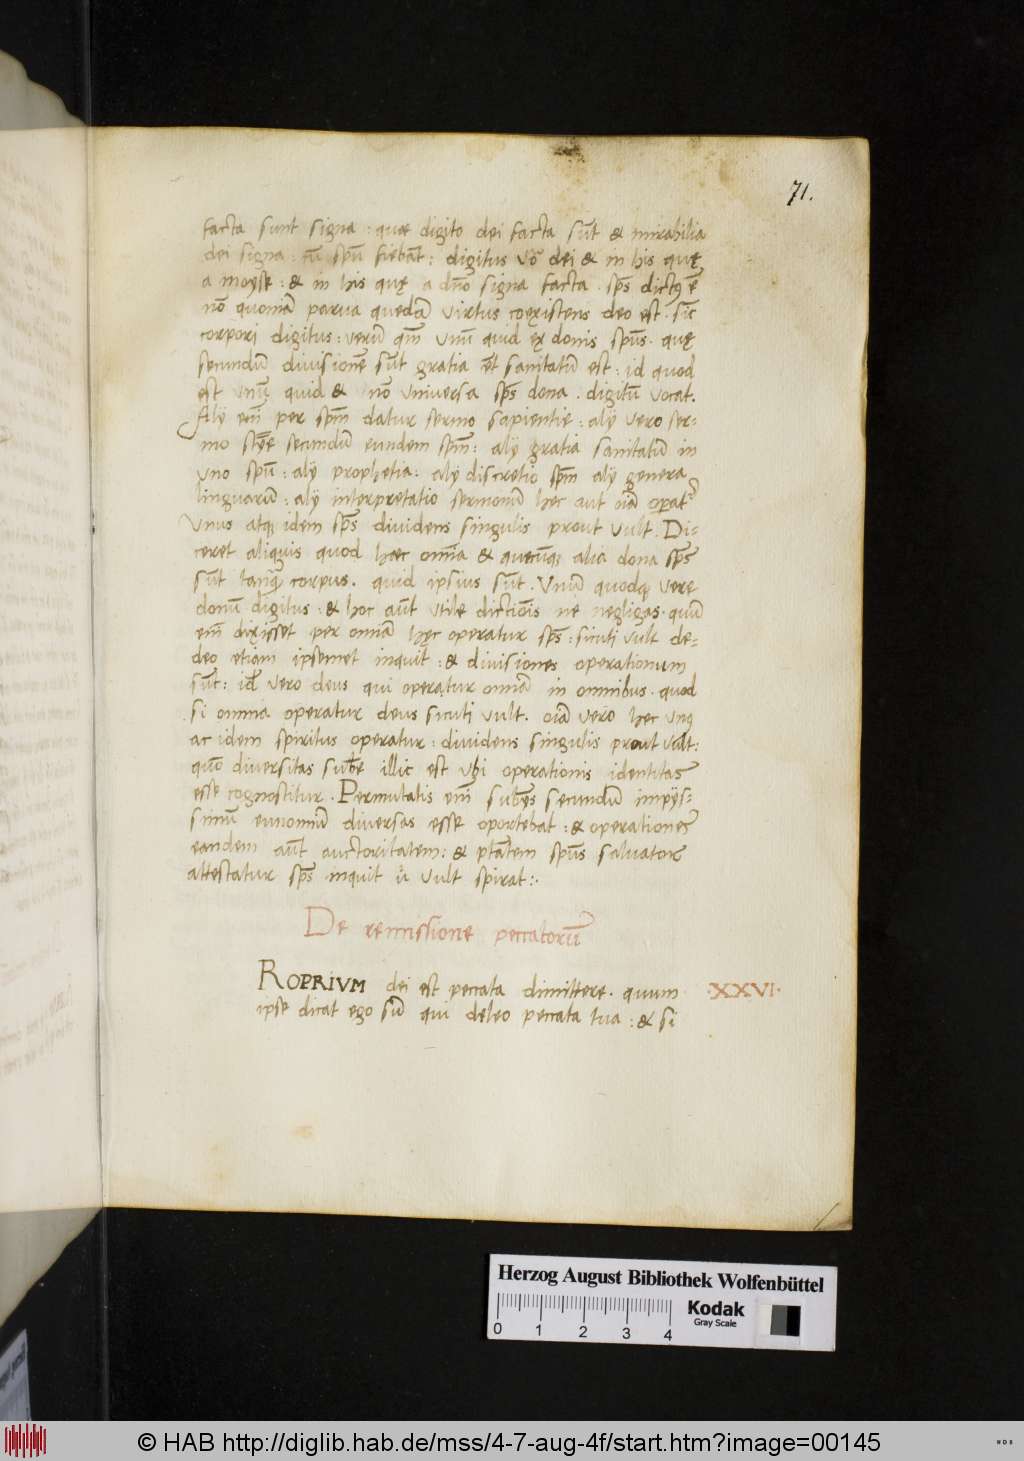 71.
facta sunt signa : quae digito dei facta sūt & mirabilia
dei signa : cū spū fiebāt : digitus vō dei & in his quę
a moyse : & in his quę a dn̄o signa facta . sp̄s dictꝰ ē
nō quoniā parua quedā virtus coęxistens deo est . sic
corpori digitus : verū qm̄ unū quid ęx donis spūs . quę
secundū divisionē sūt gratia ēt sanitatū est : id quod
est unū quid & nō universa sp̄s dona . digitū vocat.
Alij em̄ per spm̄ datur sermo sapientie : alij vero ser-
mo secundū eundem spm̄ : alij gratia sanitatū in
uno spū : alij prophetia : alij discretio spm̄ alij genera
linguarū : alij interpretatio sermonū hec aut oīa operat᷑
Unus atqꝫ idem sp̄s dividens singulis prout vult . Di-
ceret aliquis quod haec omnia & quecūqꝫ alia dona sp̄s
sūt tanq̄ corpus . quid ipsius sūt . Unum quodqꝫ vere
donū digitus : & hoc aūt utile dictiōis ne negligas . quū
em̄ dixisset per omniā hęc operatur sp̄s : sicuti vult de-
deo etiam ipsemet inquit : & divisiones operationum
sūt : id vero deus qui operatur omniā in omnibus . quod
si omnia operatur deus sicuti vult . oīa vero hec unꝰ
ac idem spiritus operatur : dividens singulis prout vult :
quō diversitas sub̄e illic est ubi operationis identitas
esse cognoscitur . Permutatis em̄ sub̄ijs secundū impijs-
simū eunomiū diversas esse oportebat : & operationes
eandem aūt auctoritatem : & ptātem spūs salvator
attestatur sp̄s inquit ū vult spirat :.
De remissione peccatorū
ROPRIVM dei est peccata dimittere . quum ·XXVI·
ipse dicat ego sū qui deleo peccata tua : & si
Herzog August Bibliothek Wolfenbüttel
Kodak
Gray Scale
0 1 2 3 4
© HAB http://diglib.hab.de/mss/4-7-aug-4f/start.htm?image=00145